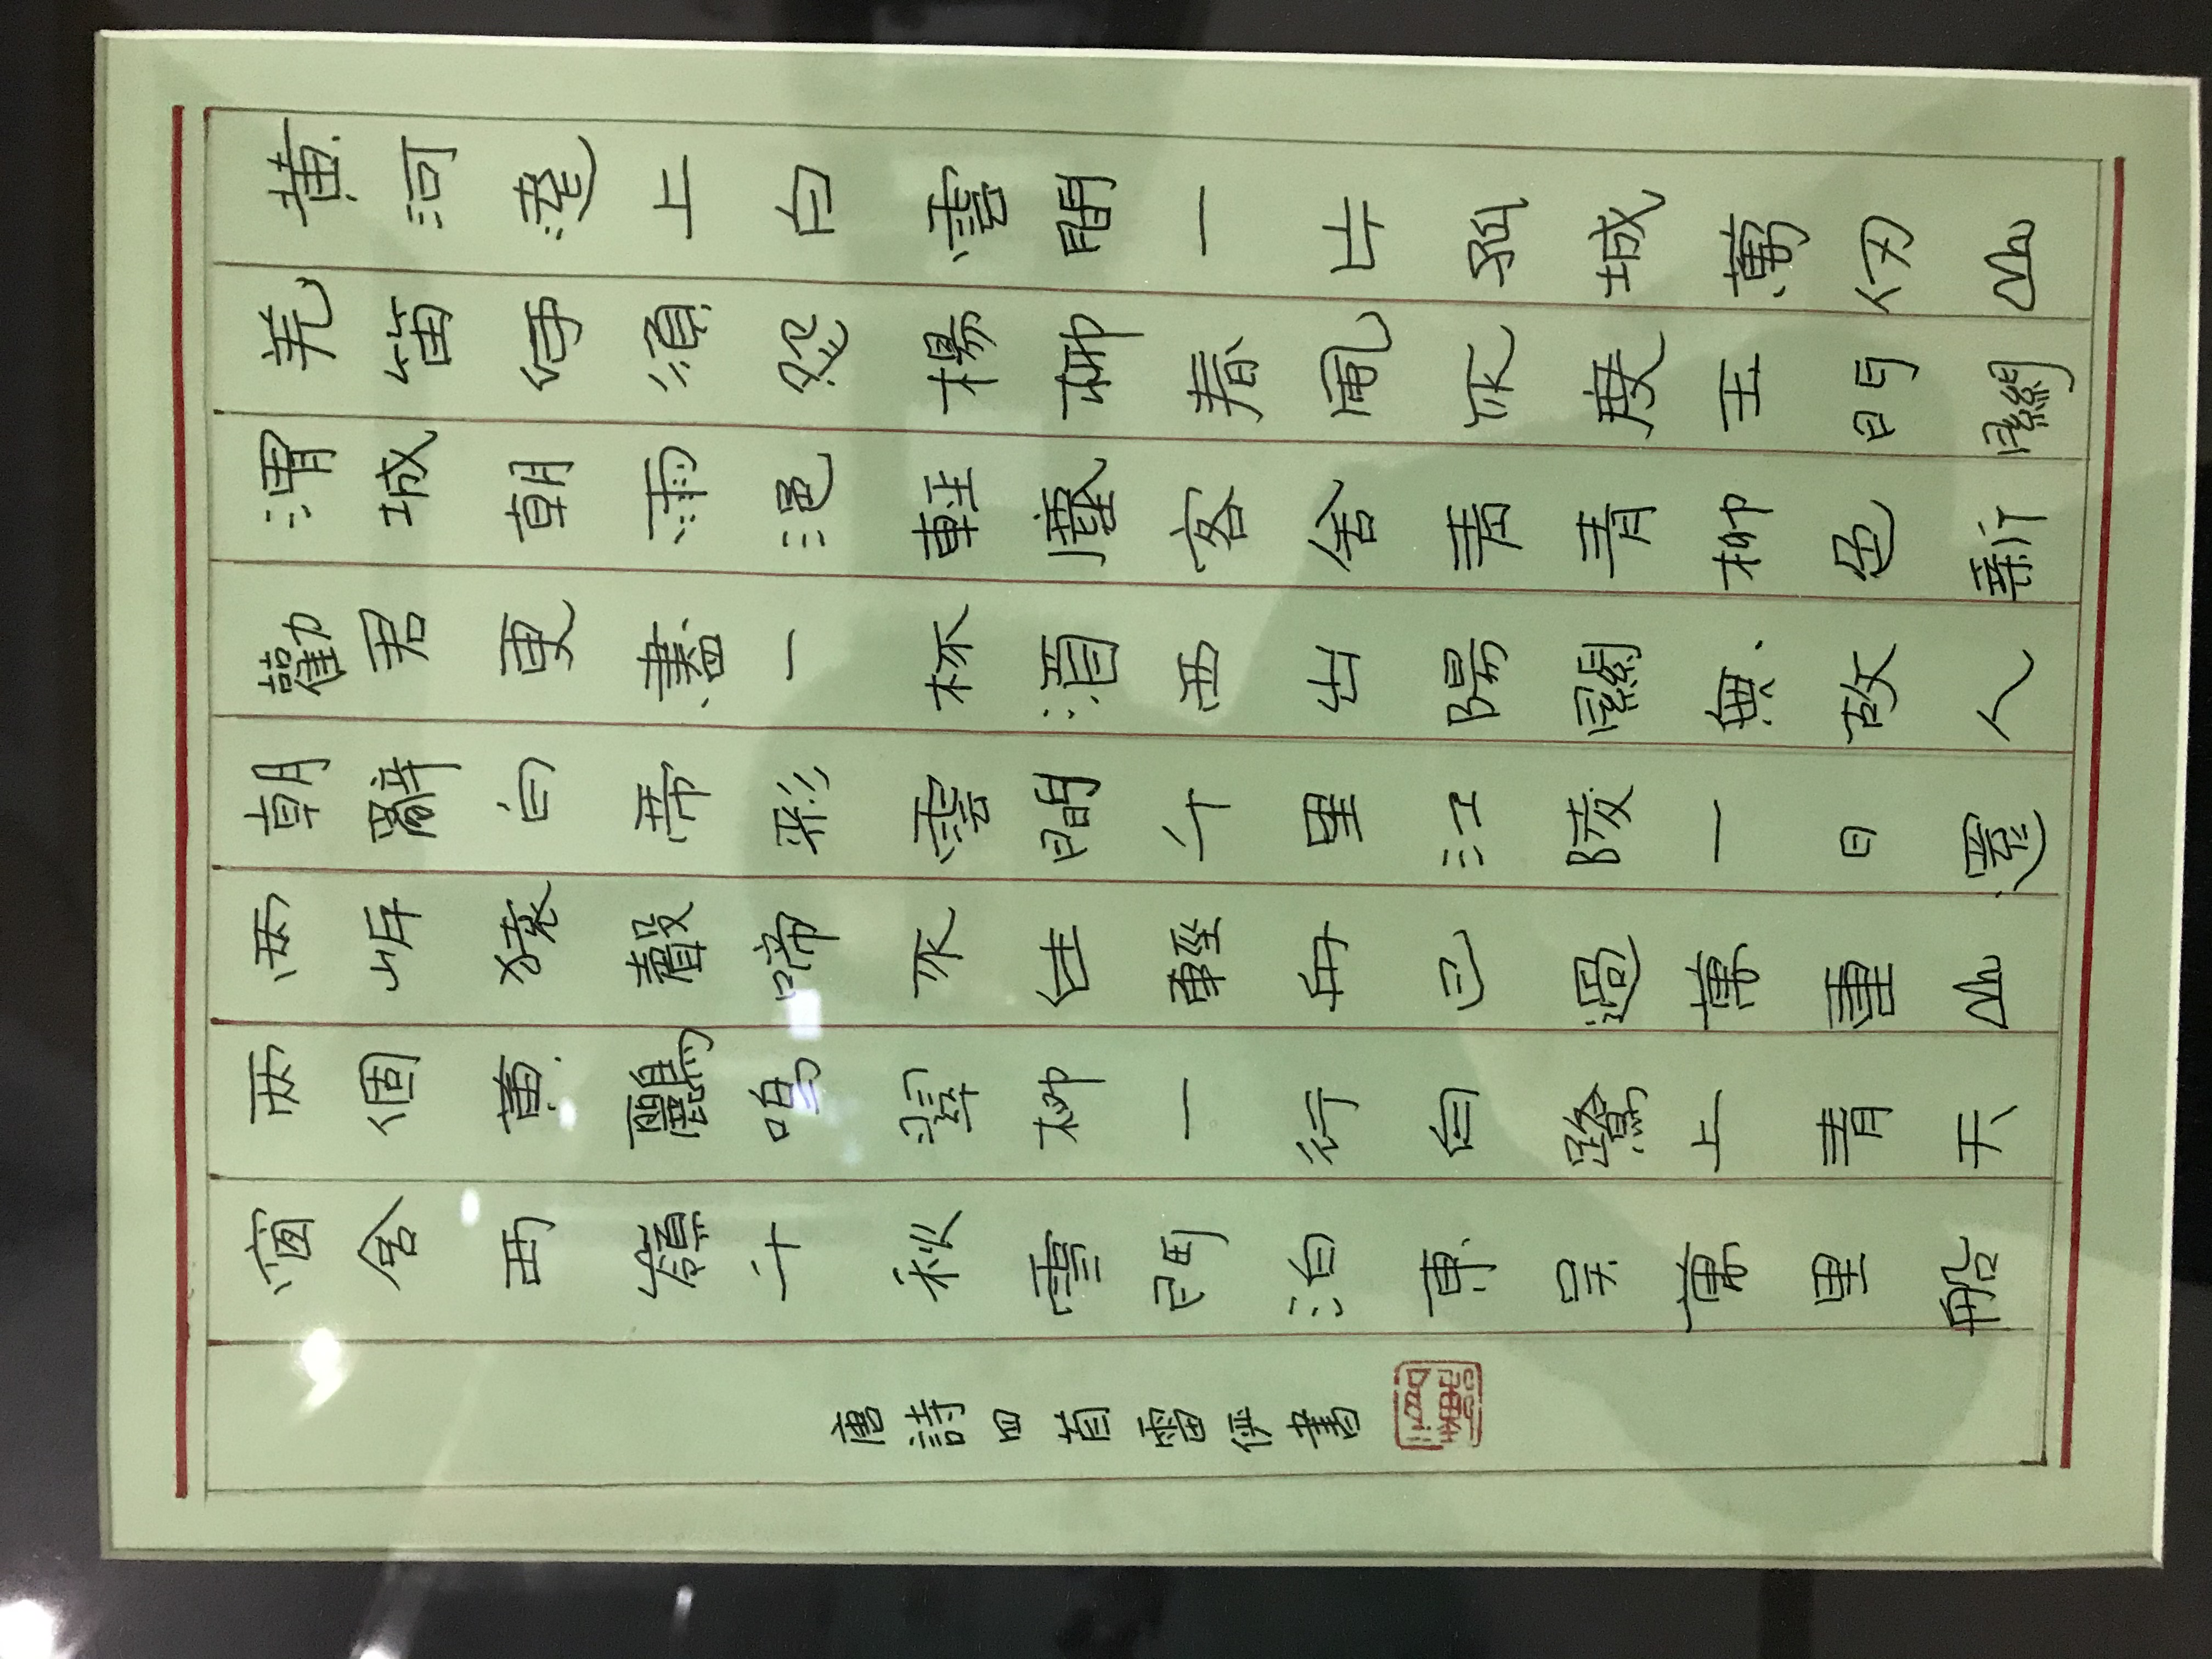 黄河遠上白雲間一片孤城萬仞山
羌笛何須怨楊柳春風不度玉門關
渭城朝雨浥輕塵客舍青青柳色新
勸君更盡一杯酒西出陽關無故人
朝辭白帝彩雲間千里江陵一日還
兩岸猿聲啼不住輕舟已過萬重山
兩個黄鸝鳴翠柳一行白鷺上青天
窗含西嶺千秋雪門泊東吴萬里船
唐詩四首雷傑書